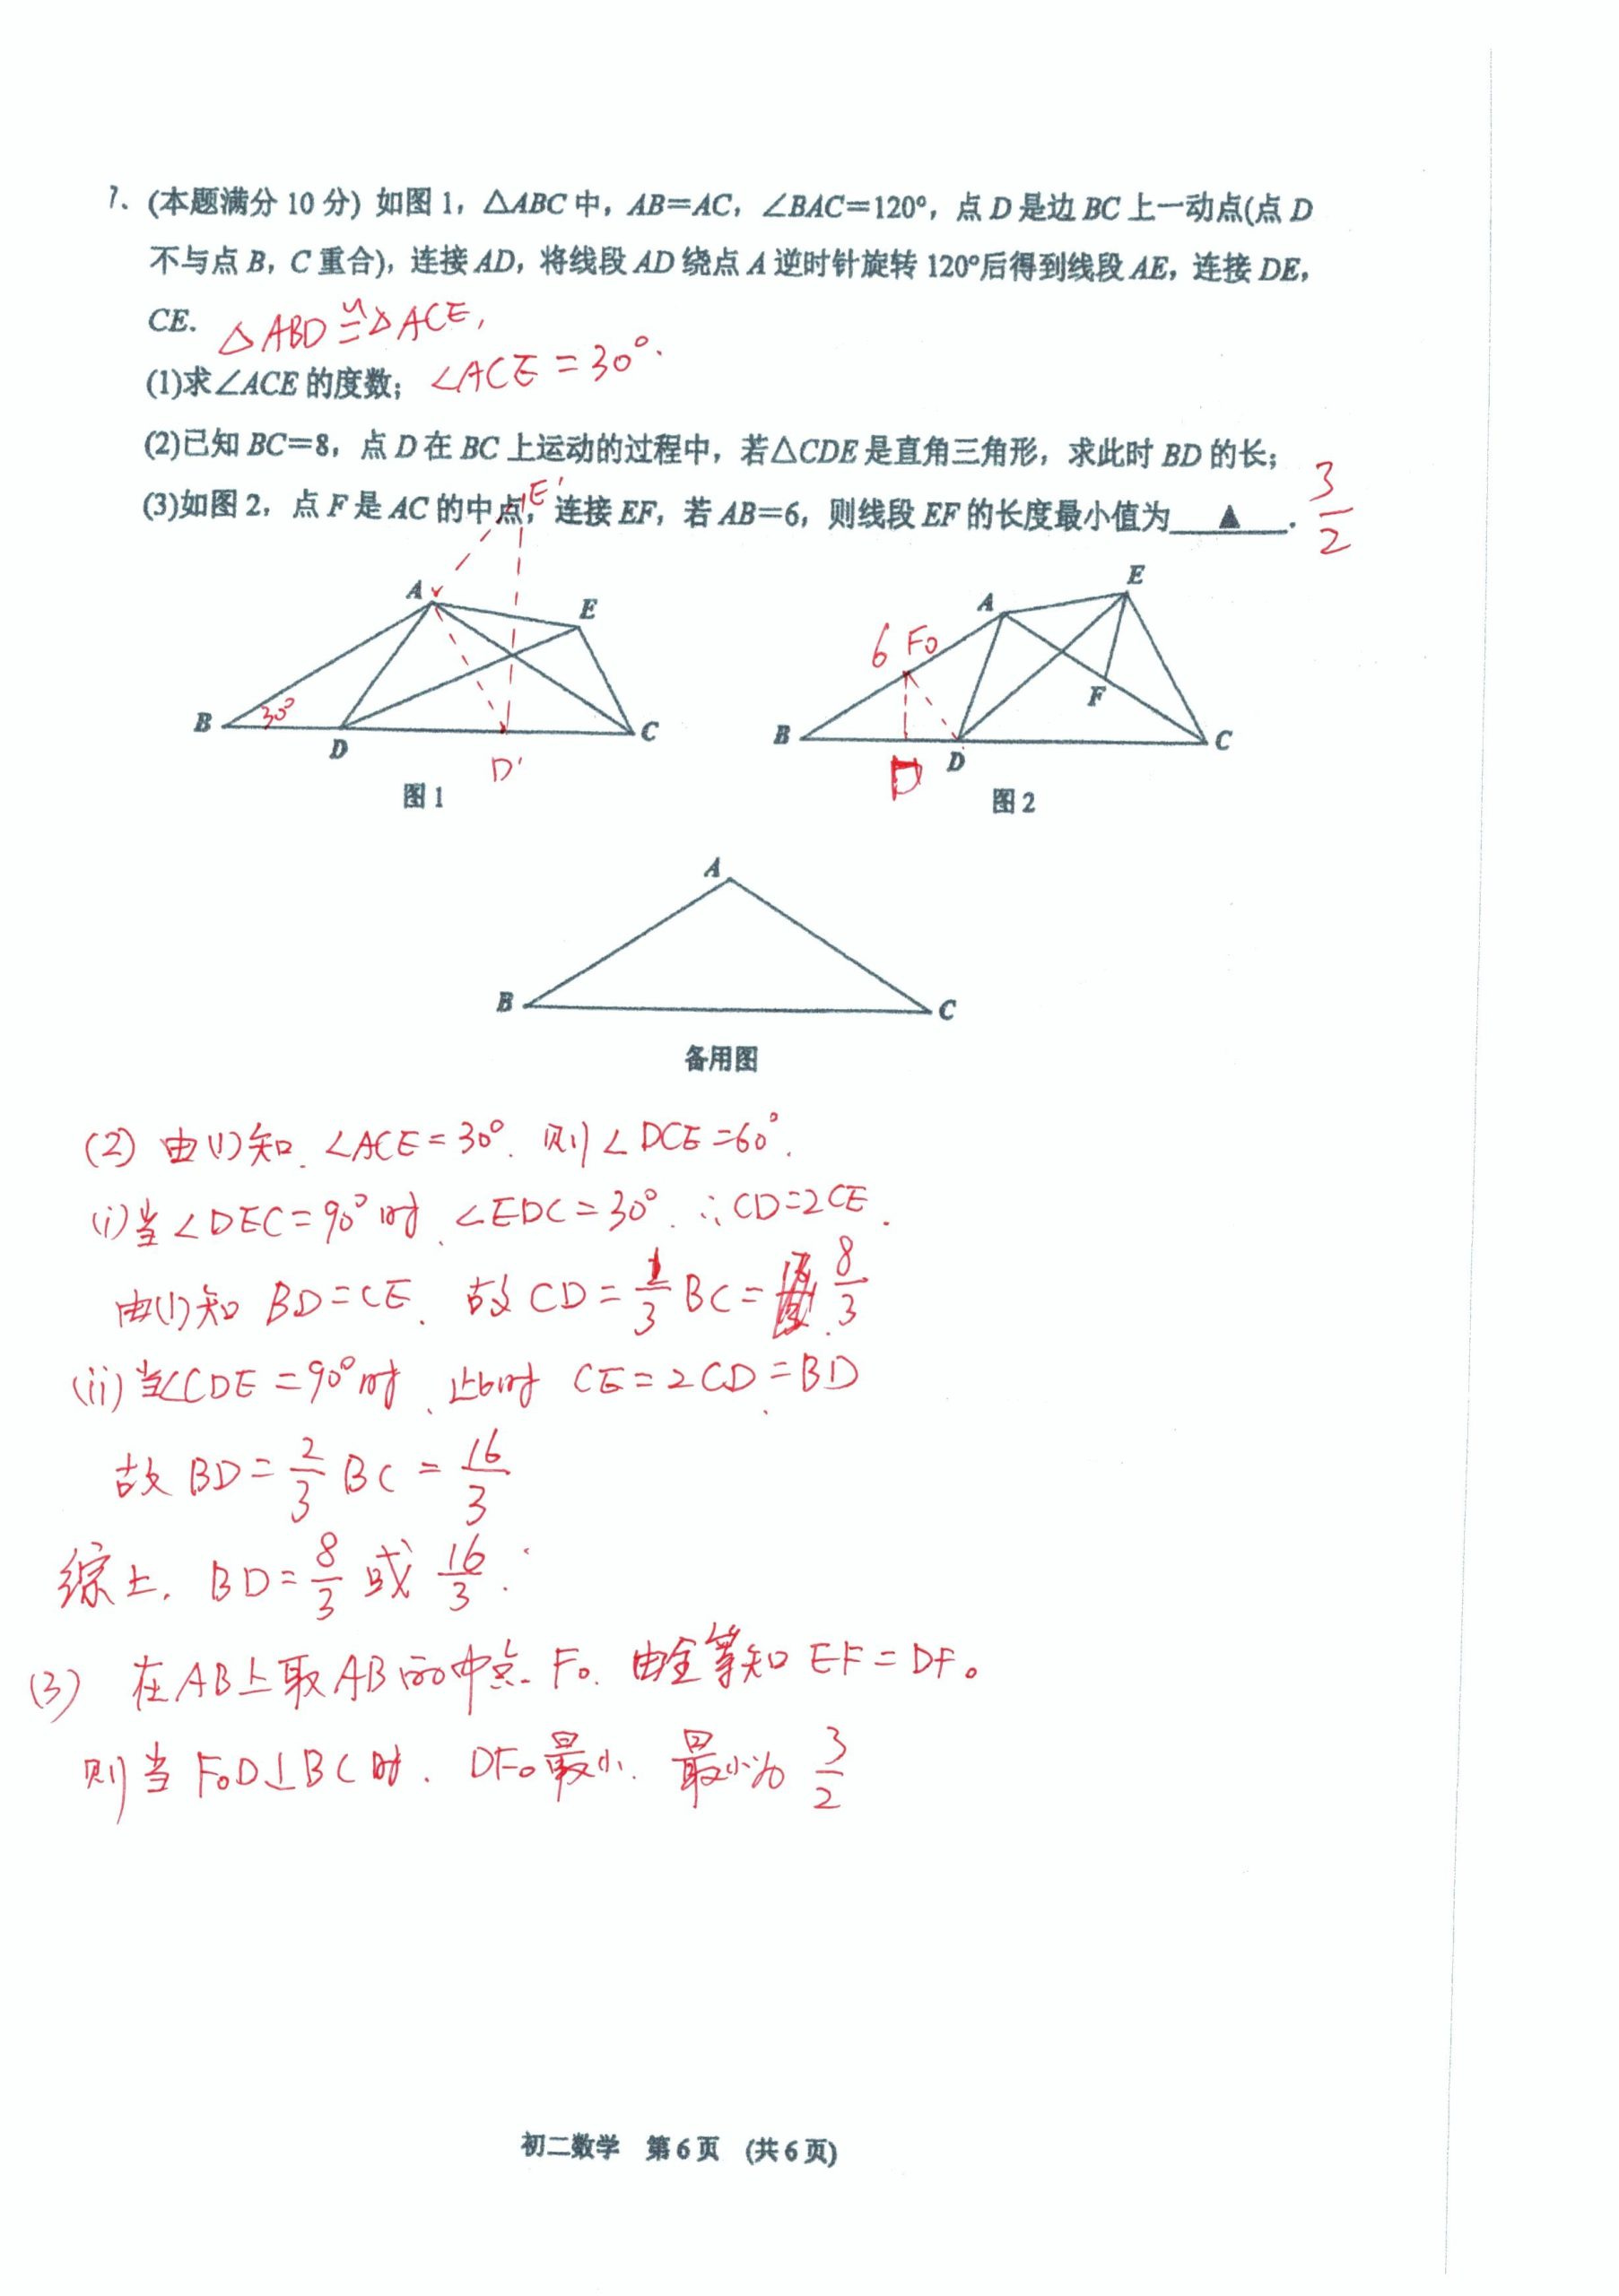 7. (本题满分 10 分) 如图 1，△ABC 中，AB＝AC，∠BAC＝120°，点 D 是边 BC 上一动点(点 D
不与点 B，C 重合)，连接 AD，将线段 AD 绕点 A 逆时针旋转 120°后得到线段 AE，连接 DE，
CE.
△ABD≌△ACE,
(1)求∠ACE 的度数； ∠ACE = 30°.
(2)已知 BC＝8，点 D 在 BC 上运动的过程中，若△CDE 是直角三角形，求此时 BD 的长；
(3)如图 2，点 F 是 AC 的中点，连接 EF，若 AB＝6，则线段 EF 的长度最小值为 ▲ . 3/2
E'
A
E
B
30°
D
D'
C
图 1
A
E
6 F₀
F
B
D
D
C
图 2
A
B
C
备用图
(2) 由(1)知. ∠ACE = 30°. 则∠DCE = 60°.
(i) 当∠DEC = 90°时. ∠EDC = 30°. ∴CD = 2CE.
由(1)知 BD = CE. 故 CD = 1/3 BC = 8/3.
(ii) 当∠CDE = 90°时. 此时 CE = 2CD = BD.
故 BD = 2/3 BC = 16/3
综上. BD = 8/3 或 16/3.
(3) 在AB上取AB的中点F₀. 由全等知 EF = DF₀
则当 F₀D⊥BC时. DF₀最小. 最小为 3/2
初二数学 第 6 页 (共 6 页)